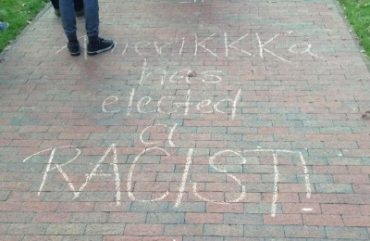 AmeriKKK'a
has
elected
a
RACIST!